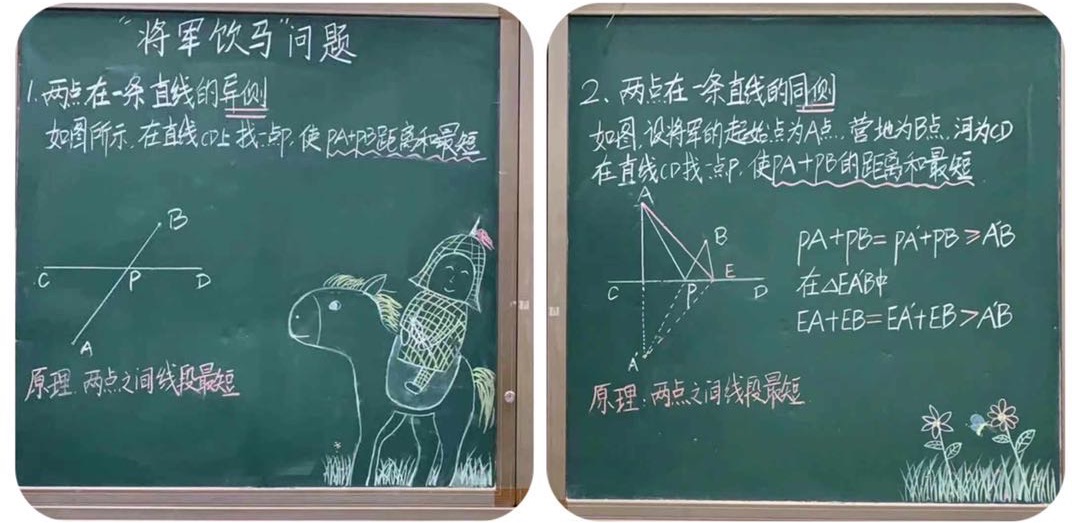 "将军饮马"问题
1.两点在一条直线的异侧
如图所示,在直线CD上找一点P,使PA+PB距离和最短
B
C P D
A
原理:两点之间线段最短
2、两点在一条直线的同侧
如图,设将军的起始点为A点,营地为B点,河为CD
在直线CD找一点P,使PA+PB的距离和最短
A
B
C P E D
A'
PA+PB=PA'+PB≥A'B
在△EA'B中
EA+EB=EA'+EB>A'B
原理:两点之间线段最短